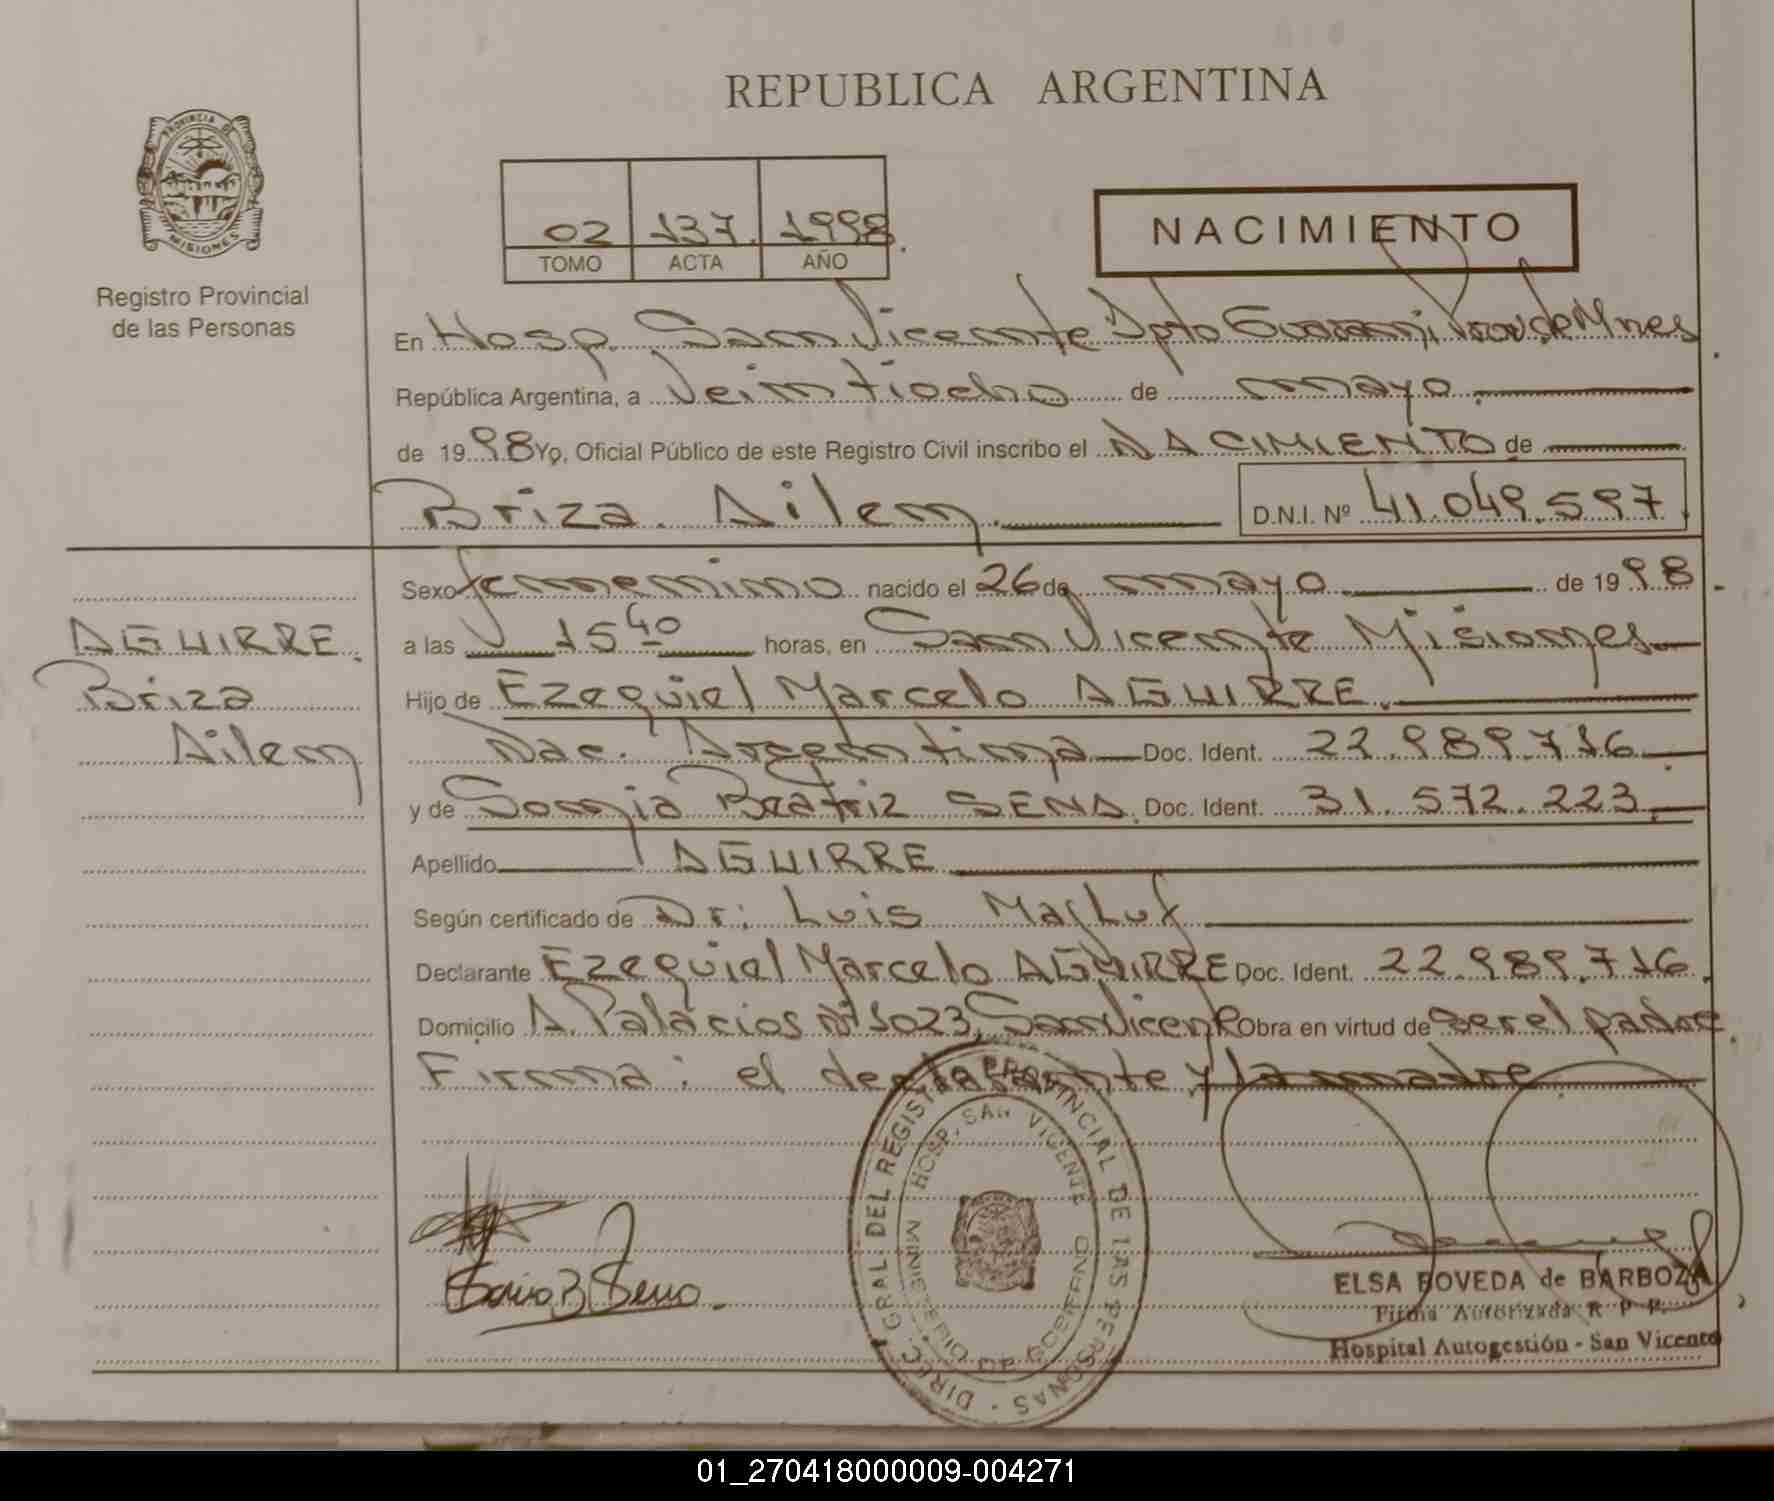 REPUBLICA ARGENTINA
PROVINCIA DE
MISIONES
Registro Provincial
de las Personas
02 137 1998
TOMO ACTA AÑO
NACIMIENTO
En Hosp. San Vicente Dpto Guarani, Prov. de Mnes
República Argentina, a Veintiocho de mayo
de 1998 Yo, Oficial Público de este Registro Civil inscribo el NACIMIENTO de
Briza Ailen D.N.I. Nº 41.049.597
Sexo femenino nacido el 26 de mayo de 1998
AGUIRRE
a las 15 40 horas, en San Vicente Misiones
Briza
Hijo de Ezequiel Marcelo AGUIRRE
Ailen
Nac. Argentina Doc. Ident. 22.989.716
y de Sonia Beatriz SENA Doc. Ident. 31.572.223
Apellido AGUIRRE
Según certificado de Dr: Luis Masluf
Declarante Ezequiel Marcelo AGUIRRE Doc. Ident. 22.989.716
Domicilio A. Palacios Nº 1023, San Vicente Obra en virtud de ser el padre
Firma: el declarante y la madre
DIREC. GRAL. DEL REGISTRO PROVINCIAL DE LAS PERSONAS
HOSP. SAN VICENTE
MINISTERIO DE GOBIERNO
Sonia B Sena.
ELSA BOVEDA de BARBOZA
Firma Autorizada R. P. P.
Hospital Autogestión - San Vicente
01_270418000009-004271